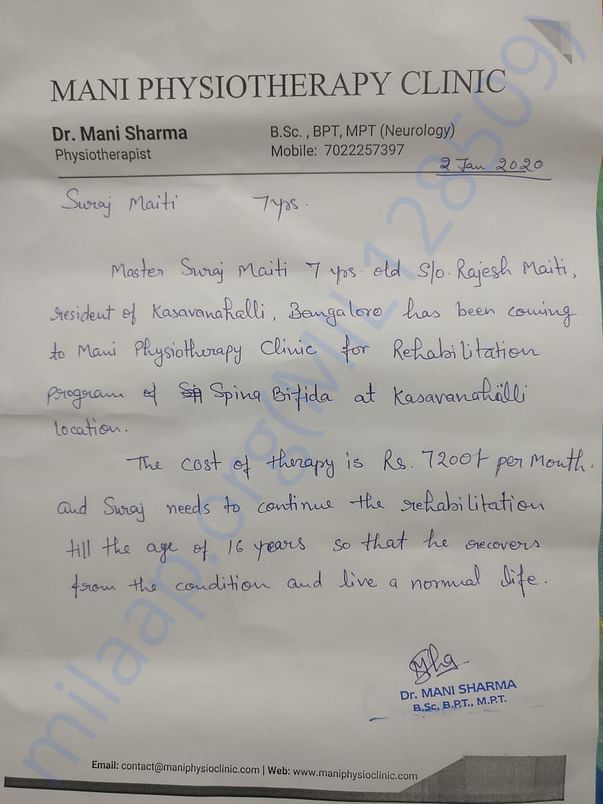 MANI PHYSIOTHERAPY CLINIC
Dr. Mani Sharma
Physiotherapist
B.Sc. , BPT, MPT (Neurology)
Mobile: 7022257397
2 Jan 2020
Suraj Maiti 7 yrs.
Master Suraj Maiti 7 yrs. old S/o. Rajesh Maiti,
resident of Kasavanahalli, Bangalore has been coming
to Mani Physiotherapy Clinic for Rehabilitation
program of Spina Bifida at Kasavanahalli
location.
The cost of therapy is Rs. 7200/- per Month.
and Suraj needs to continue the rehabilitation
till the age of 16 years so that he recovers
from the condition and live a normal life.
Dr. MANI SHARMA
B.Sc. B.P.T., M.P.T.
Email: contact@maniphysioclinic.com | Web: www.maniphysioclinic.com
milaap.org(MIL1285509)